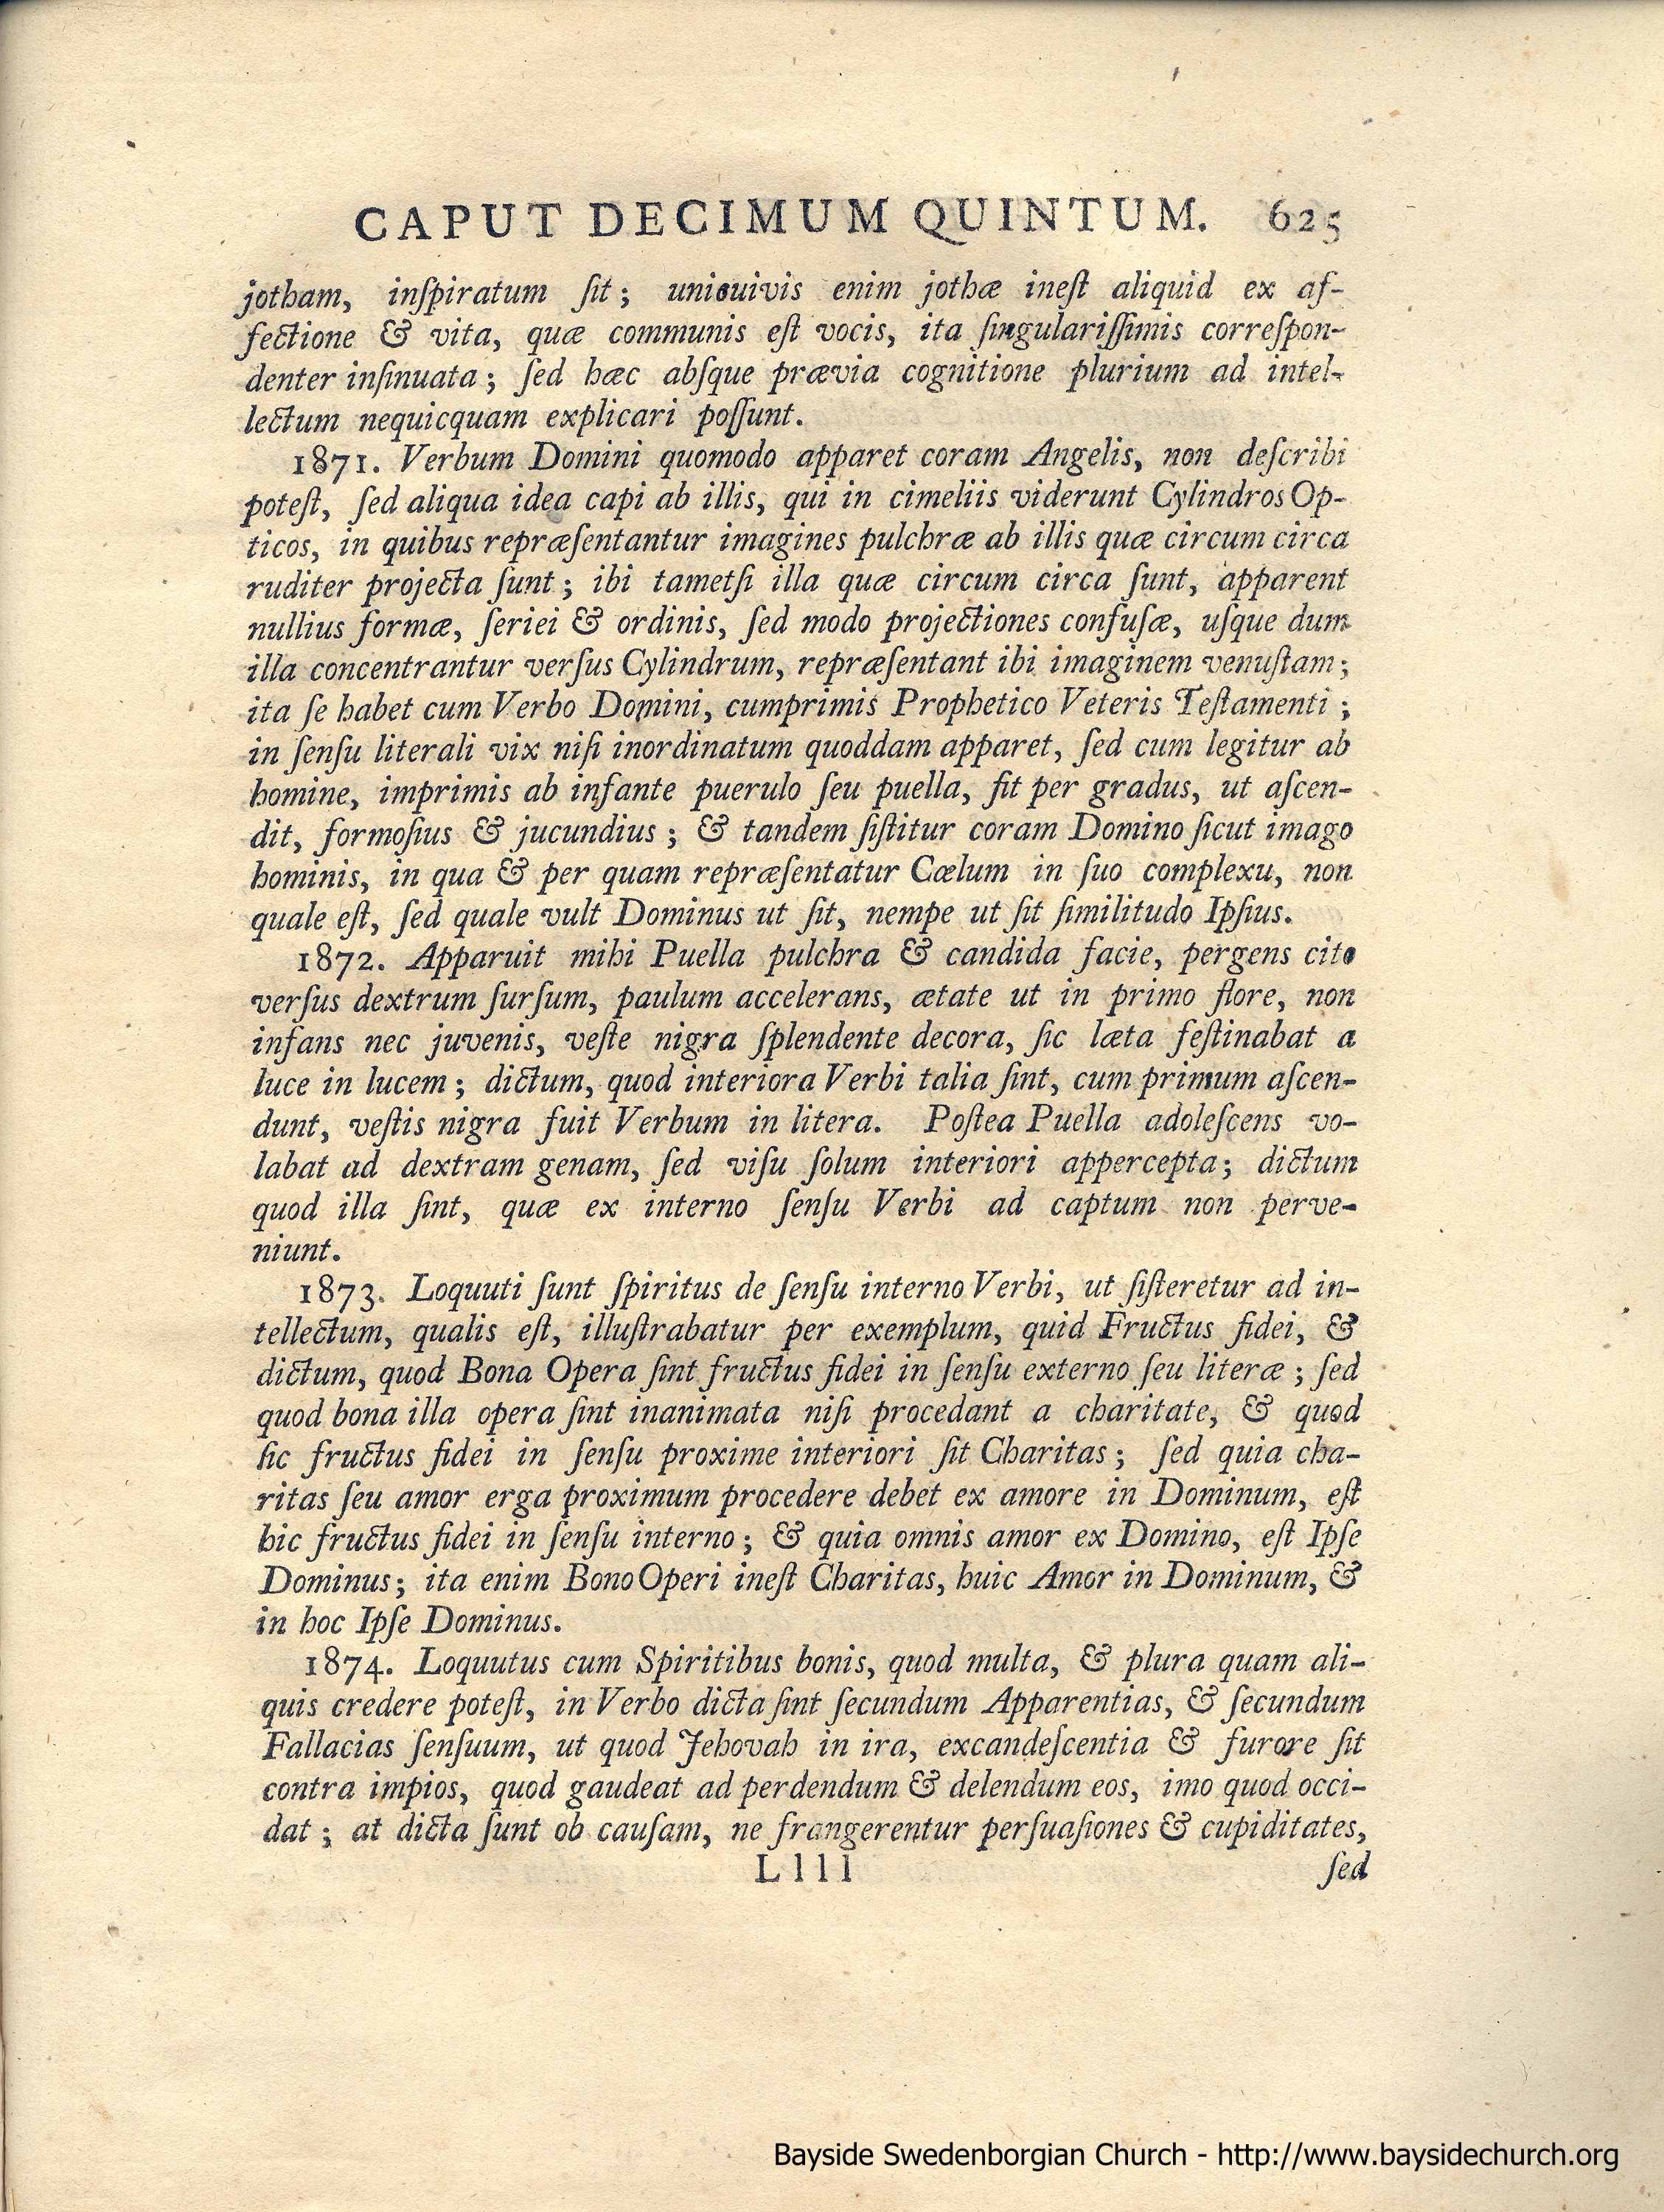 CAPUT DECIMUM QUINTUM. 625
jotham, inſpiratum ſit; unicuivis enim jothæ ineſt aliquid ex af-
fectione & vita, quæ communis eſt vocis, ita ſingulariſſimis correſpon-
denter inſinuata; ſed hæc abſque prævia cognitione plurium ad intel-
lectum nequicquam explicari poſſunt.
1871. Verbum Domini quomodo apparet coram Angelis, non deſcribi
poteſt, ſed aliqua idea capi ab illis, qui in cimeliis viderunt Cylindros Op-
ticos, in quibus repræſentantur imagines pulchræ ab illis quæ circum circa
ruditer projecta ſunt; ibi tametſi illa quæ circum circa ſunt, apparent
nullius formæ, ſeriei & ordinis, ſed modo projectiones confuſæ, uſque dum
illa concentrantur verſus Cylindrum, repræſentant ibi imaginem venuſtam;
ita ſe habet cum Verbo Domini, cumprimis Prophetico Veteris Teſtamenti;
in ſenſu literali vix niſi inordinatum quoddam apparet, ſed cum legitur ab
homine, imprimis ab infante puerulo ſeu puella, fit per gradus, ut aſcen-
dit, formoſius & jucundius; & tandem ſiſtitur coram Domino ſicut imago
hominis, in qua & per quam repræſentatur Cœlum in ſuo complexu, non
quale eſt, ſed quale vult Dominus ut ſit, nempe ut ſit ſimilitudo Ipſius.
1872. Apparuit mihi Puella pulchra & candida facie, pergens cito
verſus dextrum ſurſum, paulum accelerans, ætate ut in primo flore, non
infans nec juvenis, veſte nigra ſplendente decora, ſic læta feſtinabat a
luce in lucem; dictum, quod interiora Verbi talia ſint, cum primum aſcen-
dunt, veſtis nigra fuit Verbum in litera. Poſtea Puella adoleſcens vo-
labat ad dextram genam, ſed viſu ſolum interiori appercepta; dictum
quod illa ſint, quæ ex interno ſenſu Verbi ad captum non perve-
niunt.
1873. Loquuti ſunt ſpiritus de ſenſu interno Verbi, ut ſiſteretur ad in-
tellectum, qualis eſt, illuſtrabatur per exemplum, quid Fructus fidei, &
dictum, quod Bona Opera ſint fructus fidei in ſenſu externo ſeu literæ; ſed
quod bona illa opera ſint inanimata niſi procedant a charitate, & quod
ſic fructus fidei in ſenſu proxime interiori ſit Charitas; ſed quia cha-
ritas ſeu amor erga proximum procedere debet ex amore in Dominum, eſt
hic fructus fidei in ſenſu interno; & quia omnis amor ex Domino, eſt Ipſe
Dominus; ita enim Bono Operi ineſt Charitas, huic Amor in Dominum, &
in hoc Ipſe Dominus.
1874. Loquutus cum Spiritibus bonis, quod multa, & plura quam ali-
quis credere poteſt, in Verbo dicta ſint ſecundum Apparentias, & ſecundum
Fallacias ſenſuum, ut quod Jehovah in ira, excandeſcentia & furore ſit
contra impios, quod gaudeat ad perdendum & delendum eos, imo quod occi-
dat; at dicta ſunt ob cauſam, ne frangerentur perſuaſiones & cupiditates,
L l l l ſed
Bayside Swedenborgian Church - http://www.baysidechurch.org